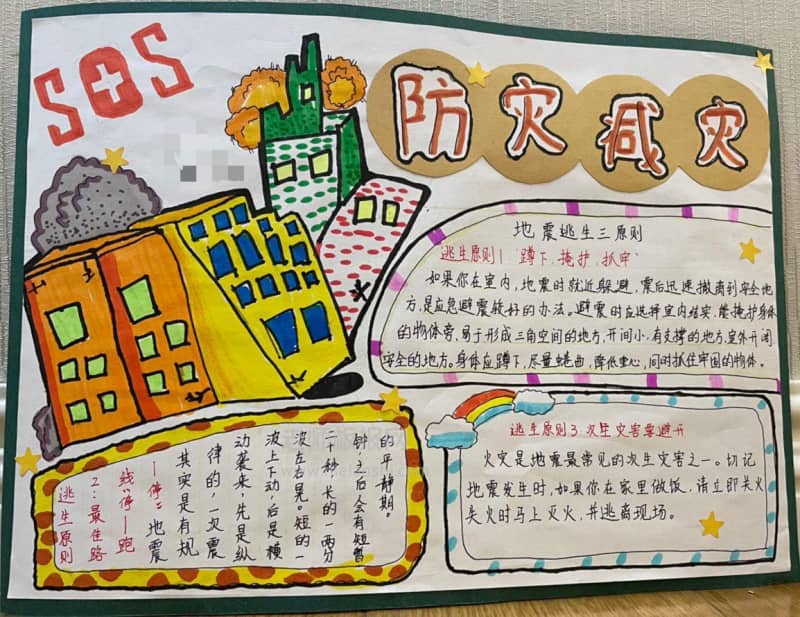 SOS
防灾减灾
地震逃生三原则
逃生原则1 "蹲下、掩护、抓牢"
如果你在室内,地震时就近躲避,震后迅速撤离到安全地
方,是应急避震较好的办法。避震时应选择室内结实、能掩护身体
的物体旁,易于形成三角空间的地方,开间小、有支撑的地方,室外开阔
安全的地方。身体应蹲下,尽量蜷曲,降低重心,同时抓住牢固的物体。
逃生原则
2:最佳路
线:停—跑
—停。地震
其实是有规
律的,一次震
动袭来,先是纵
波上下动,后是横
波左右晃。短的一
二十秒,长的一两分
钟,之后会有短暂
的平静期。
逃生原则3 次生灾害要避开
火灾是地震最常见的次生灾害之一。切记
地震发生时,如果你在家里做饭,请立即关火
失火时马上灭火,并逃离现场。